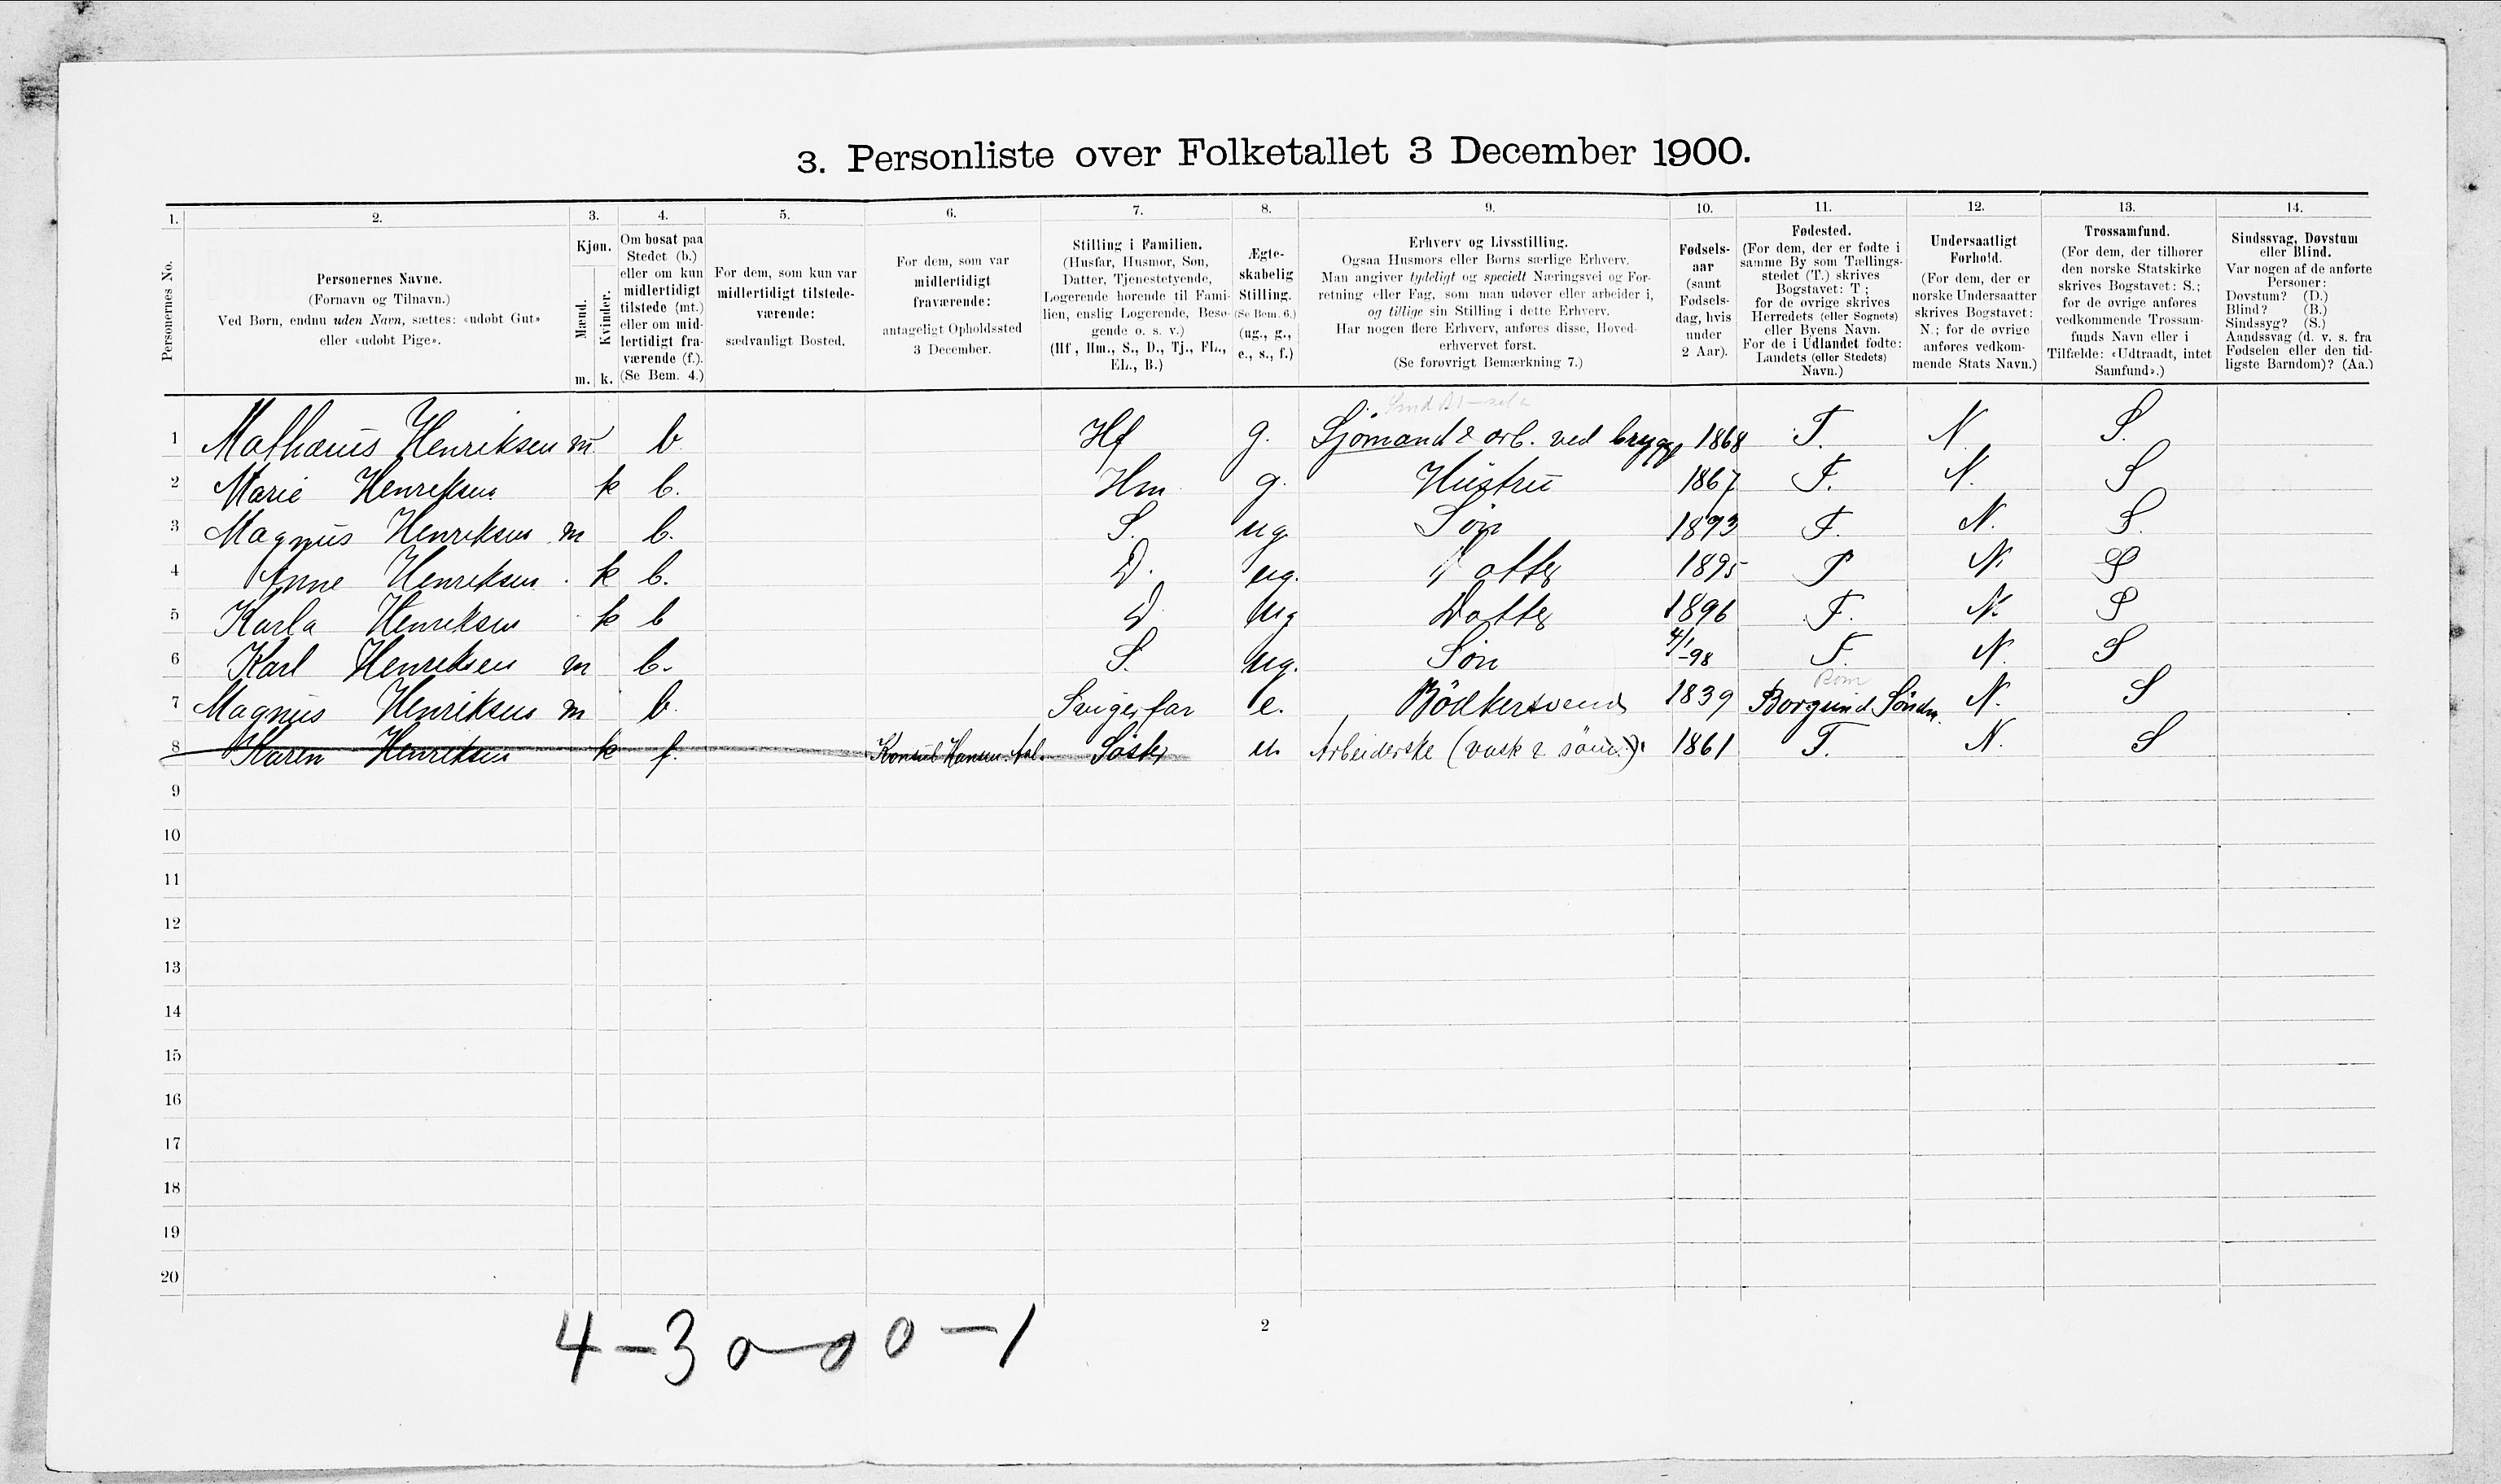 3. Personliste over Folketallet 3 December 1900.
1. 2. 3. 4. 5. 6. 7. 8. 9. 10. 11. 12. 13. 14.
Personernes No.
Personernes Navne.
(Fornavn og Tilnavn.)
Ved Børn, endnu uden Navn, sættes: «udøbt Gut»
eller «udøbt Pige».
Kjøn.
Mænd.
Kvinder.
m. k.
Om bosat paa
Stedet (b.)
eller om kun
midlertidigt
tilstede (mt.)
eller om mid-
lertidigt fra-
værende (f.).
(Se Bem. 4.)
For dem, som kun var
midlertidigt tilstede-
værende:
sædvanligt Bosted.
For dem, som var
midlertidigt
fraværende:
antageligt Opholdssted
3 December.
Stilling i Familien.
(Husfar, Husmor, Søn,
Datter, Tjenestetyende,
Logerende hørende til Fami-
lien, enslig Logerende, Besø-
gende o. s. v.)
(Hf, Hm., S., D., Tj., FL.,
EL., B.)
Ægte-
skabelig
Stilling.
(Se Bem. 6.)
(ug., g.,
e., s., f.)
Erhverv og Livsstilling.
Ogsaa Husmors eller Børns særlige Erhverv.
Man angiver tydeligt og specielt Næringsvei og For-
retning eller Fag, som man udøver eller arbeider i,
og tillige sin Stilling i dette Erhverv.
Har nogen flere Erhverv, anføres disse, Hoved-
erhvervet først.
(Se forøvrigt Bemærkning 7.)
Fødsels-
aar
(samt
Fødsels-
dag, hvis
under
2 Aar).
Fødested.
(For dem, der er fødte i
samme By som Tællings-
stedet (T.) skrives
Bogstavet: T;
for de øvrige skrives
Herredets (eller Sognets)
eller Byens Navn.
For de i Udlandet fødte:
Landets (eller Stedets)
Navn.)
Undersaatligt
Forhold.
(For dem, der er
norske Undersaatter
skrives Bogstavet:
N.; for de øvrige
anføres vedkom-
mende Stats Navn.)
Trossamfund.
(For dem, der tilhører
den norske Statskirke
skrives Bogstavet: S.;
for de øvrige anføres
vedkommende Trossam-
funds Navn eller i
Tilfælde: «Udtraadt, intet
Samfund».)
Sindssvag, Døvstum
eller Blind.
Var nogen af de anførte
Personer:
Døvstum? (D.)
Blind? (B.)
Sindssyg? (S.)
Aandssvag (d. v. s. fra
Fødselen eller den tid-
ligste Barndom)? (Aa.)
1 Mathæus Henriksen m b Hf g. Sjömand & arb. ved brygge 1868 T. N S.
2 Marie Henriksen k b. Hm g. Hustru 1867 T. N. S
3 Magnus Henriksen m b. S. ug Sön 1893 T. N. S.
4 Anne Henriksen k b. D. ug. Datter 1895 T N. S
5 Karla Henriksen k b D ug Datter 1896 T. N. S
6 Karl Henriksen m b. S. ug. Sön 4/1 -98 T. N. S
7 Magnus Henriksen m b. Svigerfar e. Bödkersvend 1839 Borgund Söndm. N. S
8 Karen Henriksen k f. Konsul Hansen Aal. Söster Arbeiderske (vask & söm.) 1861 T. N. S
9
10
11
12
13
14
15
16
17
18
19
20
4 - 3 0 - 0 0 - 1
2